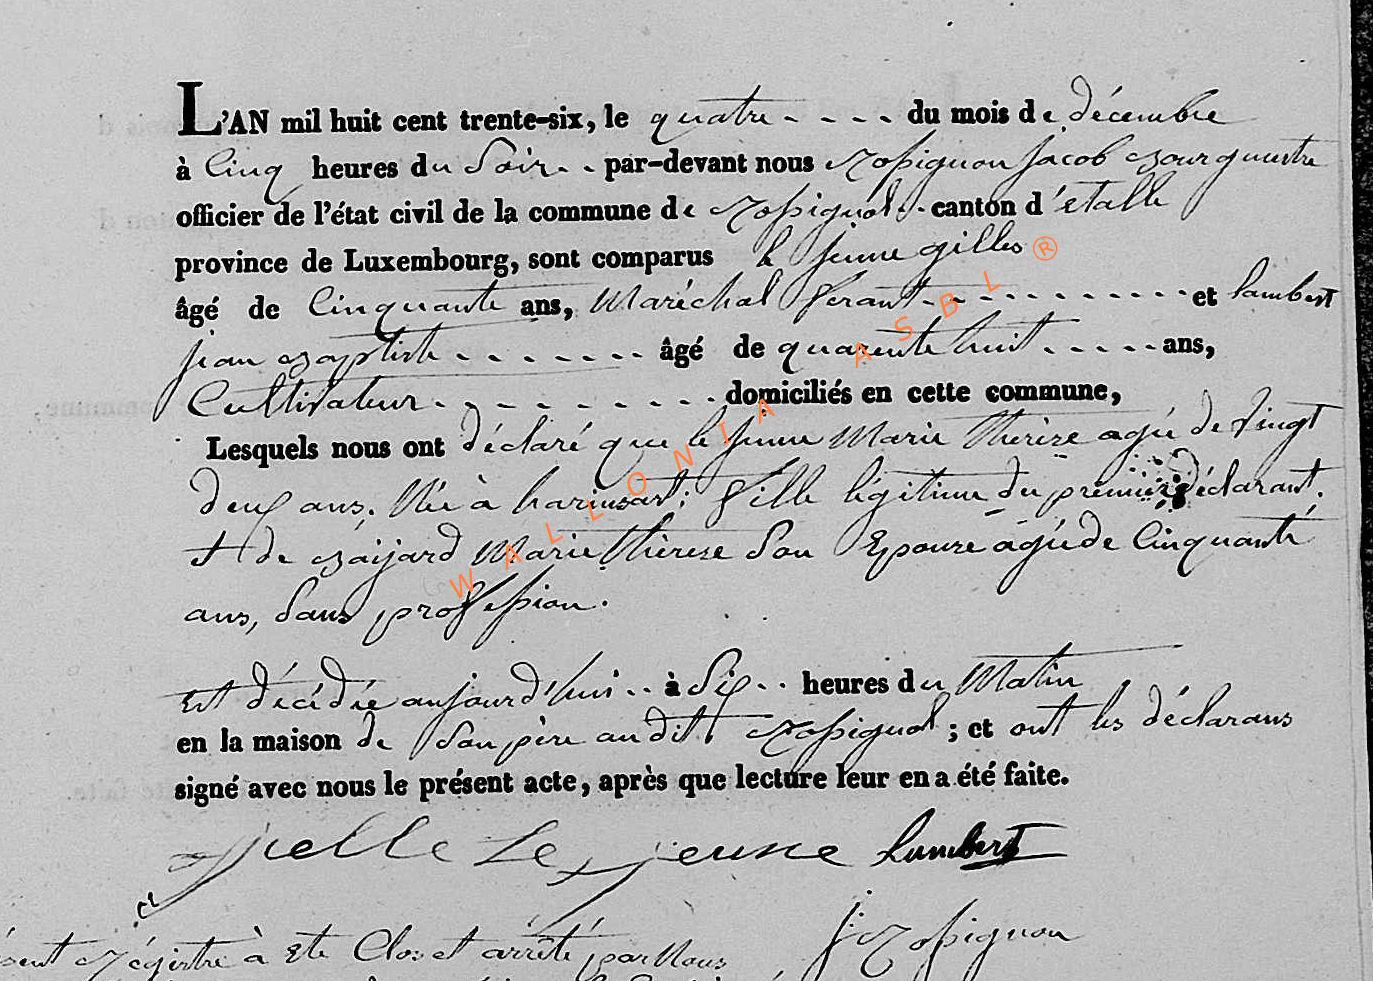 L'AN mil huit cent trente-six, le quatre - - - - du mois de décembre
à Cinq heures du Soir - - par-devant nous Rossignon Jacob Bourguestre
officier de l'état civil de la commune de Rossignol - canton d'étalle
province de Luxembourg, sont comparus le Jeune gilles
âgé de Cinquante ans, Maréchal ferant - - - - - - - - - - et lambert
jean Baptiste - - - - - - - âgé de quarente huit - - - - - ans,
Cultivateur - - - - - - - - - domiciliés en cette commune,
Lesquels nous ont déclaré que le Jeune Marie Thérèze agée de vingt
deux ans. Née à harinsart; fille légitime du premier déclarant.
et de Baijard Marie Thérèse Son Epouze agée de Cinquante
ans, Sans profession.
Est décédée aujourd'hui - - à Six - - heures du Matin
en la maison de Son père au dit Rossignol ; et ont les déclarans
signé avec nous le présent acte, après que lecture leur en a été faite.
jielle Le jeune lambert
J: Rossignon
Régistre à Ete Clos et arrêté par Nous
WALLONIA ASBL ®